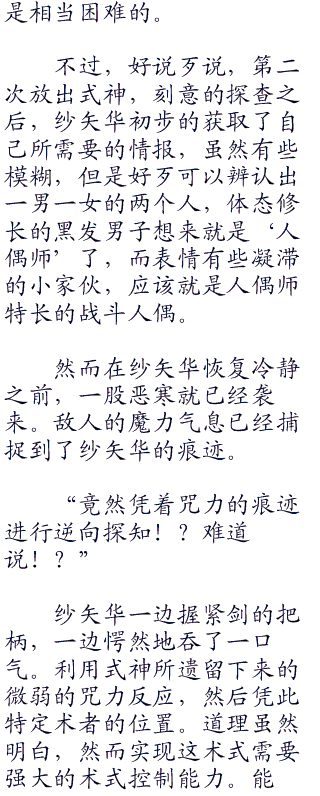 是相当困难的。
不过，好说歹说，第二
次放出式神，刻意的探查之
后，纱矢华初步的获取了自
己所需要的情报，虽然有些
模糊，但是好歹可以辨认出
一男一女的两个人，体态修
长的黑发男子想来就是‘人
偶师’了，而表情有些凝滞
的小家伙，应该就是人偶师
特长的战斗人偶。
然而在纱矢华恢复冷静
之前，一股恶寒就已经袭
来。敌人的魔力气息已经捕
捉到了纱矢华的痕迹。
“竟然凭着咒力的痕迹
进行逆向探知！？难道
说！？”
纱矢华一边握紧剑的把
柄，一边愕然地吞了一口
气。利用式神所遗留下来的
微弱的咒力反应，然后凭此
特定术者的位置。道理虽然
明白，然而实现这术式需要
强大的术式控制能力。能